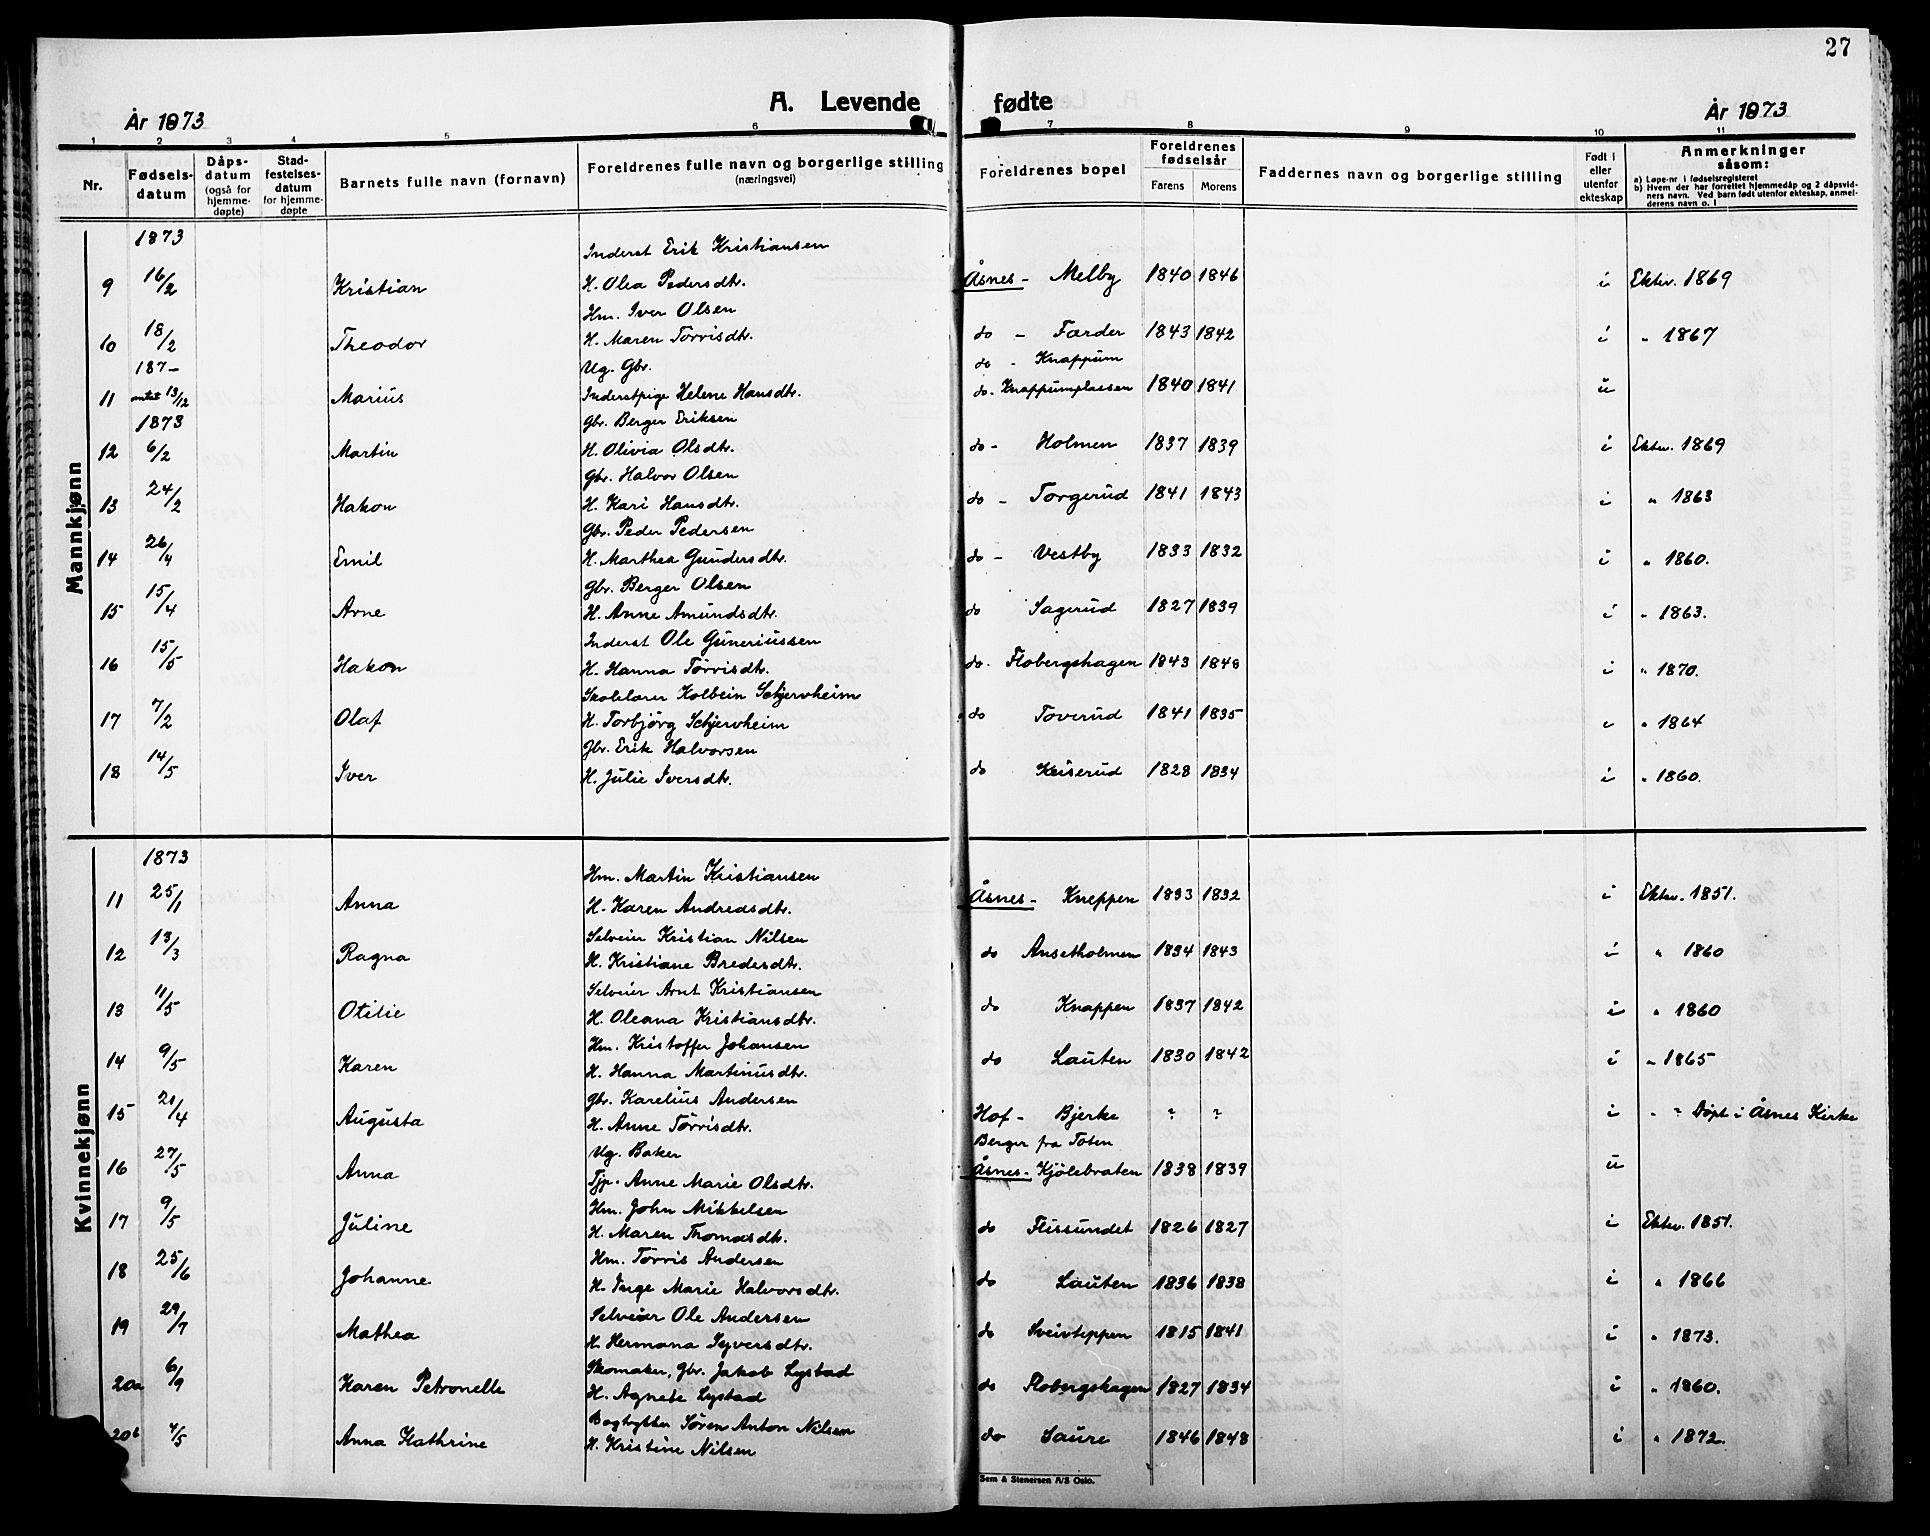 27
A. Levende fødte
År 1873
År 1873
1 2 3 4 5 6 7 8 9 10 11
Nr. Fødselsdatum Dåpsdatum (også for hjemmedøpte) Stadfestelsesdatum for hjemmedøpte Barnets fulle navn (fornavn) Foreldrenes fulle navn og borgerlige stilling (næringsvei) Foreldrenes bopel Foreldrenes fødselsår Farens Morens Faddernes navn og borgerlige stilling Født i eller utenfor ekteskap Anmerkninger såsom: a) Løpe-nr i fødselsregisteret b) Hvem der har forrettet hjemmedåp og 2 dåpsvidners navn. Ved barn født utenfor ekteskap, anmelderens navn o. l
Mannkjønn
1873 Inderst Erik Kristiansen
9 16/2 Kristian H. Olea Pedersdtr. Åsnes - Melby 1840 1846 i Ektev. 1869
Hm. Iver Olsen
10 18/2 Theodor H. Maren Torrisdtr. do - Færder 1843 1842 i " 1867
187- Ug. Gbr. do - Knappum
11 antat 13/12 Marius Inderstpige Helene Hansdtr. do - Knappumplassen 1840 1841 u
1873 Gbr. Berger Eriksen
12 6/2 Martin H. Olivia Olsdtr. do - Holmen 1837 1839 i Ektev. 1869
Gbr. Halvor Olsen
13 24/2 Hakon H. Kari Hansdtr. do - Torgerud 1841 1843 i " 1863
Gbr. Peder Pedersen
14 26/4 Emil H. Marthea Gundersdtr. do - Vestby 1833 1832 i " 1860.
Gbr. Berger Olsen
15 15/4 Arne H. Anne Amundsdtr. do Sagerud 1827 1839 i " 1863.
Inderst Ole Guneriussen
16 15/5 Hakon H. Hanna Tørrisdtr. do. Flobergshagen 1843 1848 i " 1870.
Skolelærer Kolbein Schjervheim
17 7/2 Olaf H. Torbjørg Schjervheim do Toverud 1841 1835 i " 1864
Gbr. Erik Halvorsen
18 14/5 Iver H. Julie Iversdtr. do Keiserud 1828 1834 i " 1860.
Kvinnekjønn
1873 Hm. Martin Kristiansen
11 25/1 Anna H. Karen Andreasdtr. Åsnes - Kneppen 1833 1832 i Ektev. 1851.
Selveier Kristian Nilsen
12 13/3 Ragna H. Kristiane Bredesdtr. do Ansetholmen 1834 1843 i " 1860
Selveier Arnt Kristiansen
13 11/5 Otilie H. Oleana Kristiansdtr. do Knappen 1837 1842 i " 1860
Hm. Kristoffer Johansen
14 9/5 Karen H. Hanna Martinusdtr. do Lauten 1830 1842 i " 1865
Gbr. Karelius Andersen
15 21/4 Augusta H. Anne Tørrisdtr. Hof - Bjerke ? ? i " ? Døpt i Åsnes Kirke
Ug. Baker Berger fra Toten
16 27/5 Anna Tjp. Anne Marie Olsdtr. Åsnes - Kjølebraten 1838 1839 u
Hm. John Mikkelsen
17 9/5 Juline H. Maren Thomasdtr. do Flissundet 1826 1827 i Ektev. 1851.
Hm. Tørris Andersen
18 25/6 Johanne H. Inge Marie Halvorsdtr. do Lauten 1836 1838 i " 1866
Selveier Ole Andersen
19 29/7 Mathea H. Hermana Syversdtr. do Sveivteppen 1815 1841 i " 1873.
Skomaker, Gbr. Jakob Lystad
20a 6/9 Karen Petronelle H. Agnete Lystad do Flobergshagen 1827 1834 i " 1860.
Bogtrykker Søren Anton Nilsen
20b 4/5 Anna Kathrine H. Kristine Nilsen do Saure 1846 1848 i " 1872.
Sem & Stenersen A/S Oslo.